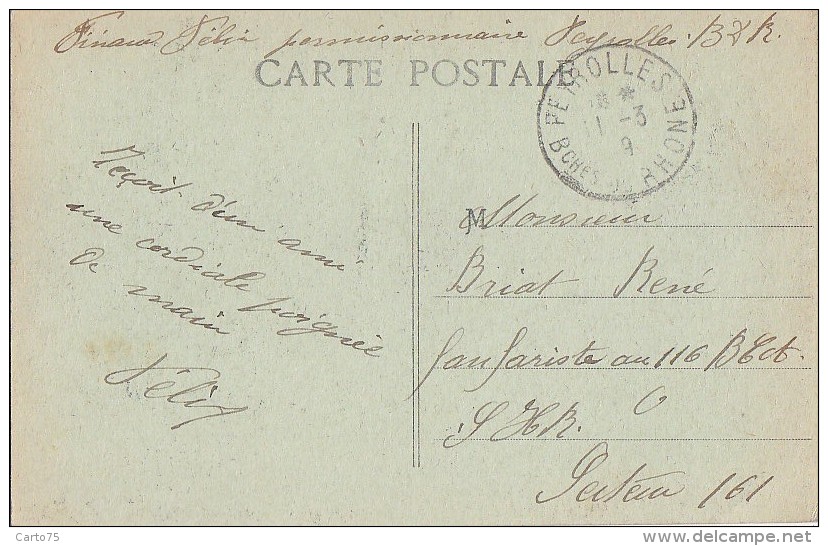 Félix permissionnaire Peyrolles. B d R.
CARTE POSTALE
PEYROLLES
BCHES DU RHONE
11 -3
9
Reçoit d'un ami
une cordiale poignée
de main
Félix
M
Monsieur
Briat René
fanfariste au 116 B
S H R.
Secteur 161
Carto75
www.delcampe.net